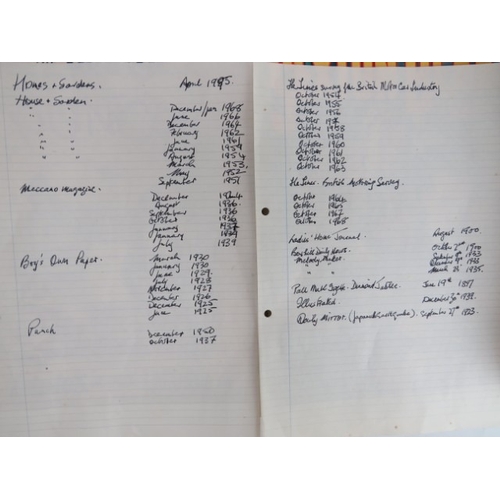 Homes & Gardens. April 1995.
House & Garden.
December/Jan 1968
" " June 1966
" " December 1964
" " February 1962
" " June 1961
" " January 1959
" " August 1954
" " March 1953
" May 1952
September 1951
Meccano Magazine. December
August 1936.
September 1936
October 1936
January 1937
January 1939
July 1939
Boy's Own Paper. March 1930
January 1930
June 1929
July 1928
November 1927
December 1926
December 1925
June 1925
Punch December 1950
October 1937
The Times Survey of the British Motor Car Industry
October 1954
October 1955
October 1956
October
October 1958
October 1959
October 1960
October 1961
October 1962
October 1963
The Times British Motoring Survey.
October
October
October
October 1965
Ladies' Home Journal. August 1900.
October 2nd 1900
1933
March 25 1935.
Pall Mall Jubilee June 19th 1897
Illustrated. December
Daily Mirror. (Japanese Earthquake) September 1923.